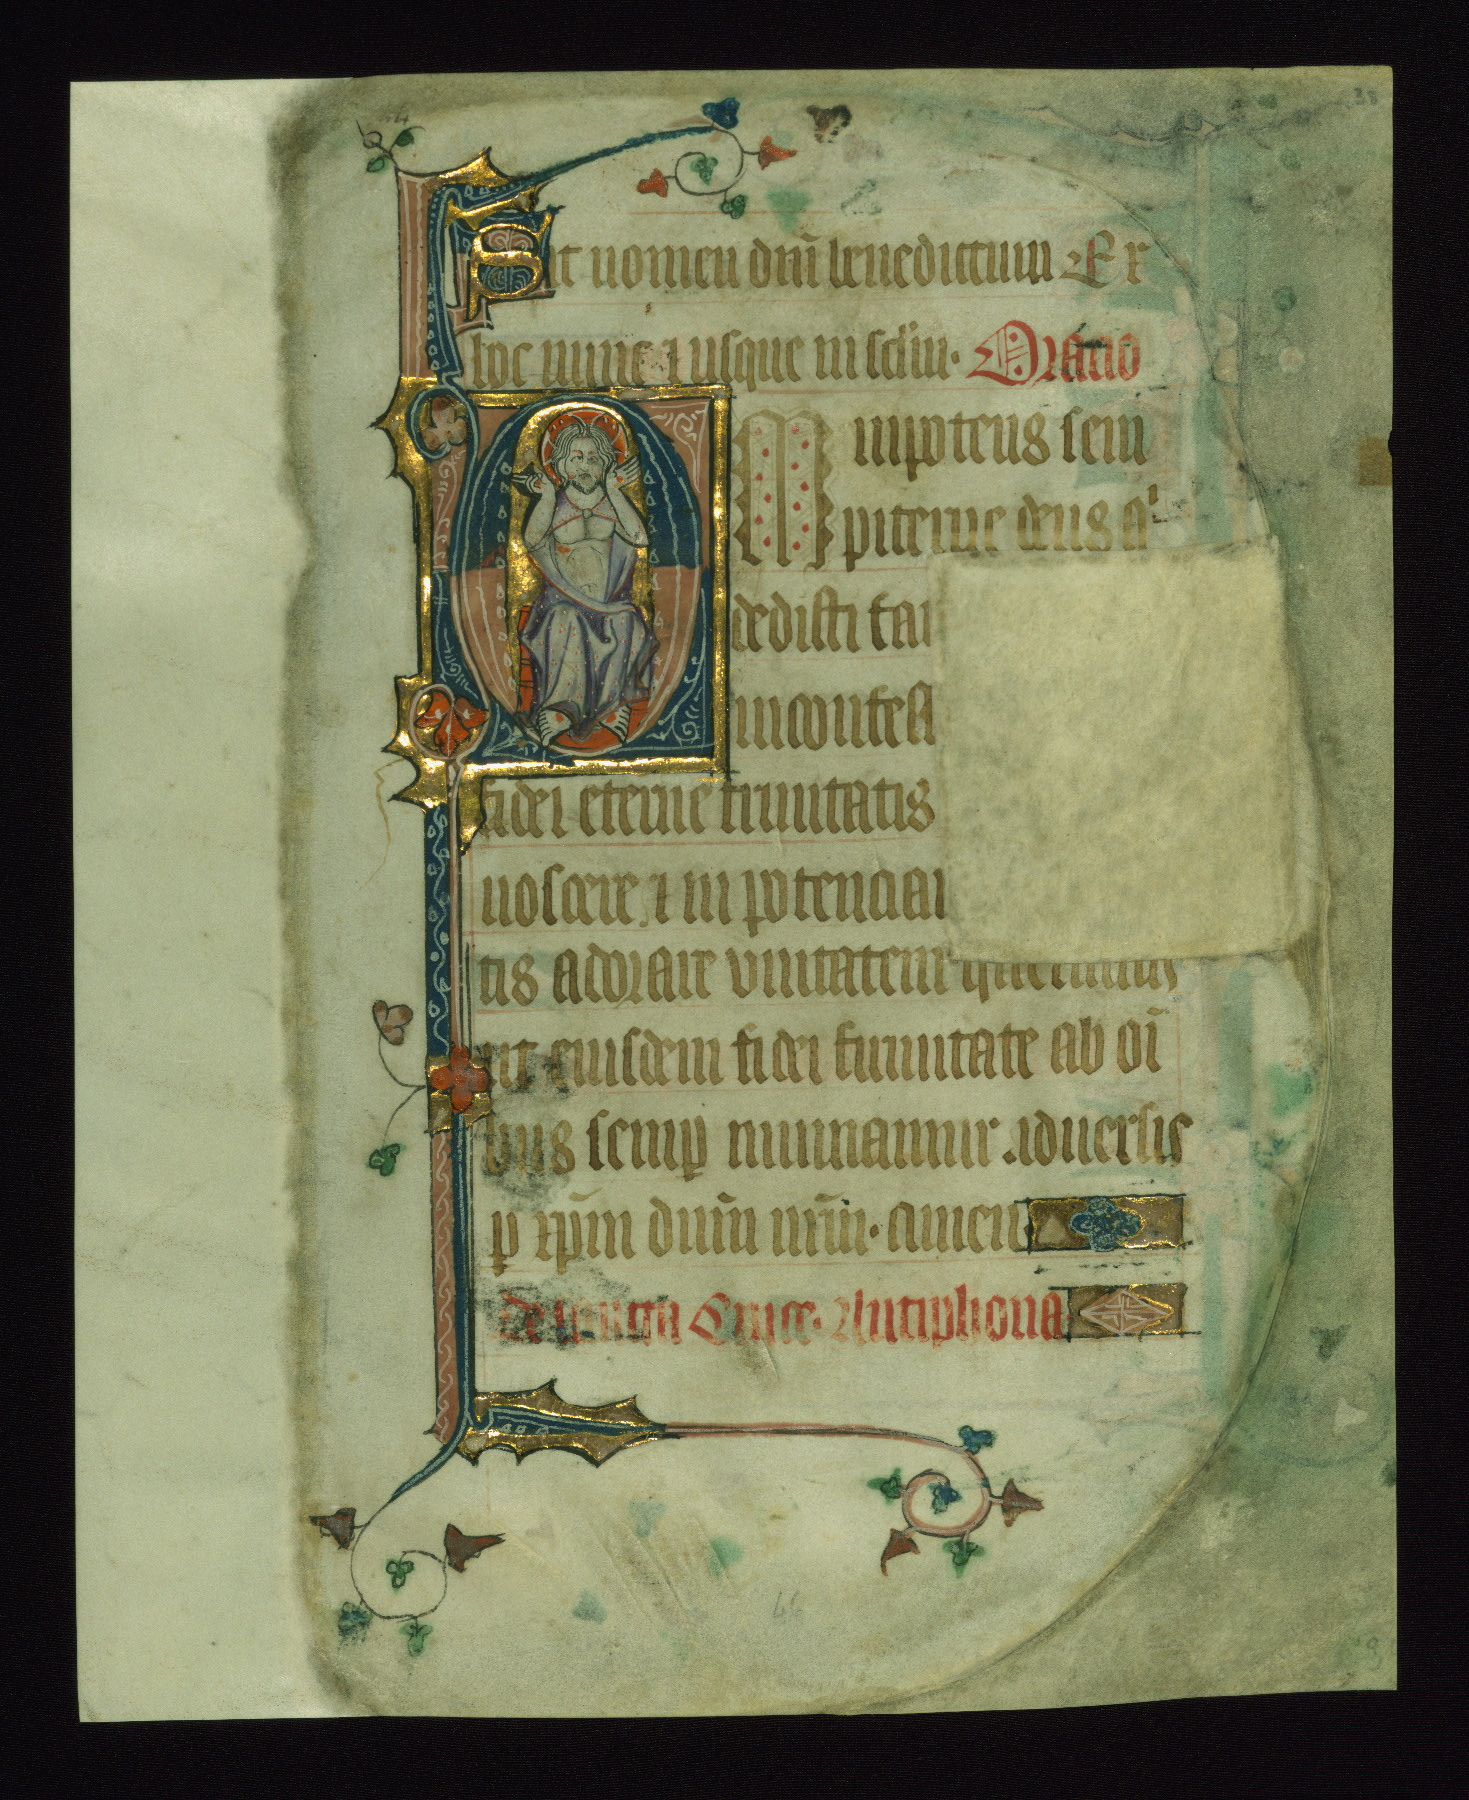 Sit nomen dñi benedictum Ex
hoc nunc ⁊ usque in sc̃lm. Oratio
Omnipotens sem
piterne deus q'
dedisti fa
in confes
fidei eterne trinitatis
noscere ⁊ in potencia
tis adorare unitatem quesumus
ut eiusdem fidei firmitate ab oĩ
bus semꝑ muniamur aduersis
ꝑ xp̃m dñm nr̃m. amen
de sancta Cruce. Antiphona
46
38